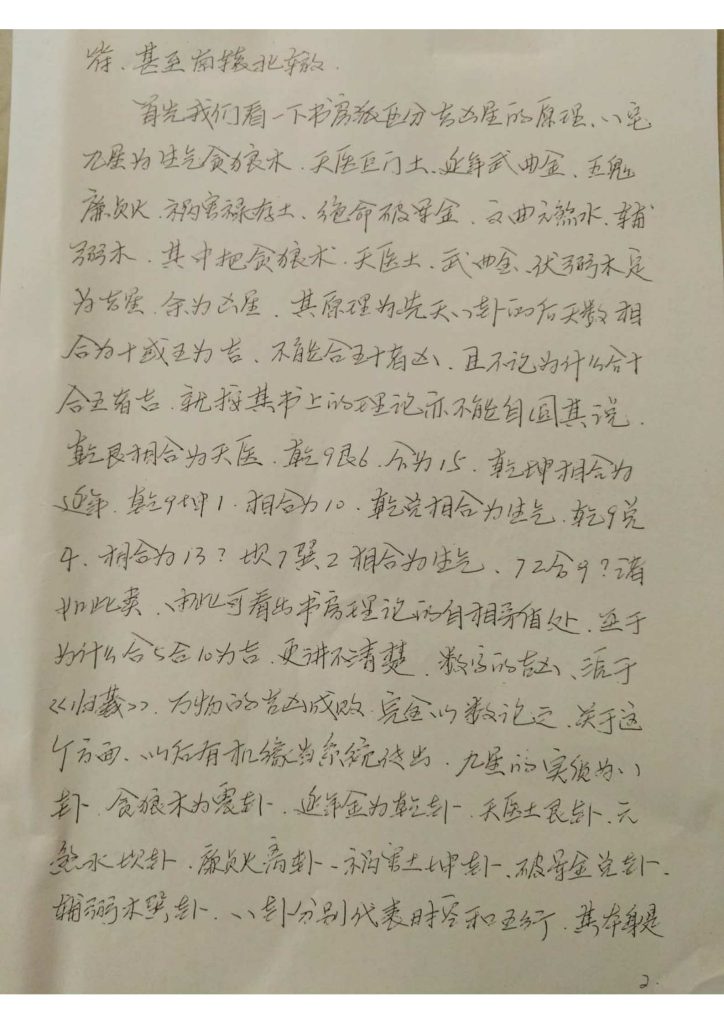 符、甚至南辕北辙.
首先我们看一下书房派区分吉凶星的原理、八宅
九星为生气贪狼木、天医巨门土、延年武曲金、五鬼
廉贞火、祸害禄存土、绝命破军金、文曲六煞水、辅
弼木、其中把贪狼木、天医土、武曲金、伏弼木定
为吉星、余为凶星、其原理为先天八卦的后天数相
合为十或五为吉、不能合五十者凶、且不论为什么合十
合五者吉、就按其书上的理论亦不能自圆其说.
乾艮相合为天医、乾9艮6、合为15、乾坤相合为
延年、乾9坤1、相合为10、乾兑相合为生气、乾9兑
4、相合为13?坎7巽2相合为生气、72合9?诸
如此类、由此可看出书房理论的自相矛盾处、至于
为什么合5合10为吉、更讲不清楚、数字的吉凶、源于
《归藏》、万物的吉凶成败、完全以数论之、关于这
个方面、以后有机缘当系统传出、九星的实质为八
卦、贪狼木为震卦、延年金为乾卦、天医土艮卦、六
煞水坎卦、廉贞火离卦、祸害土坤卦、破军金兑卦、
辅弼木巽卦、八卦分别代表时空和五行、其本身是
2.